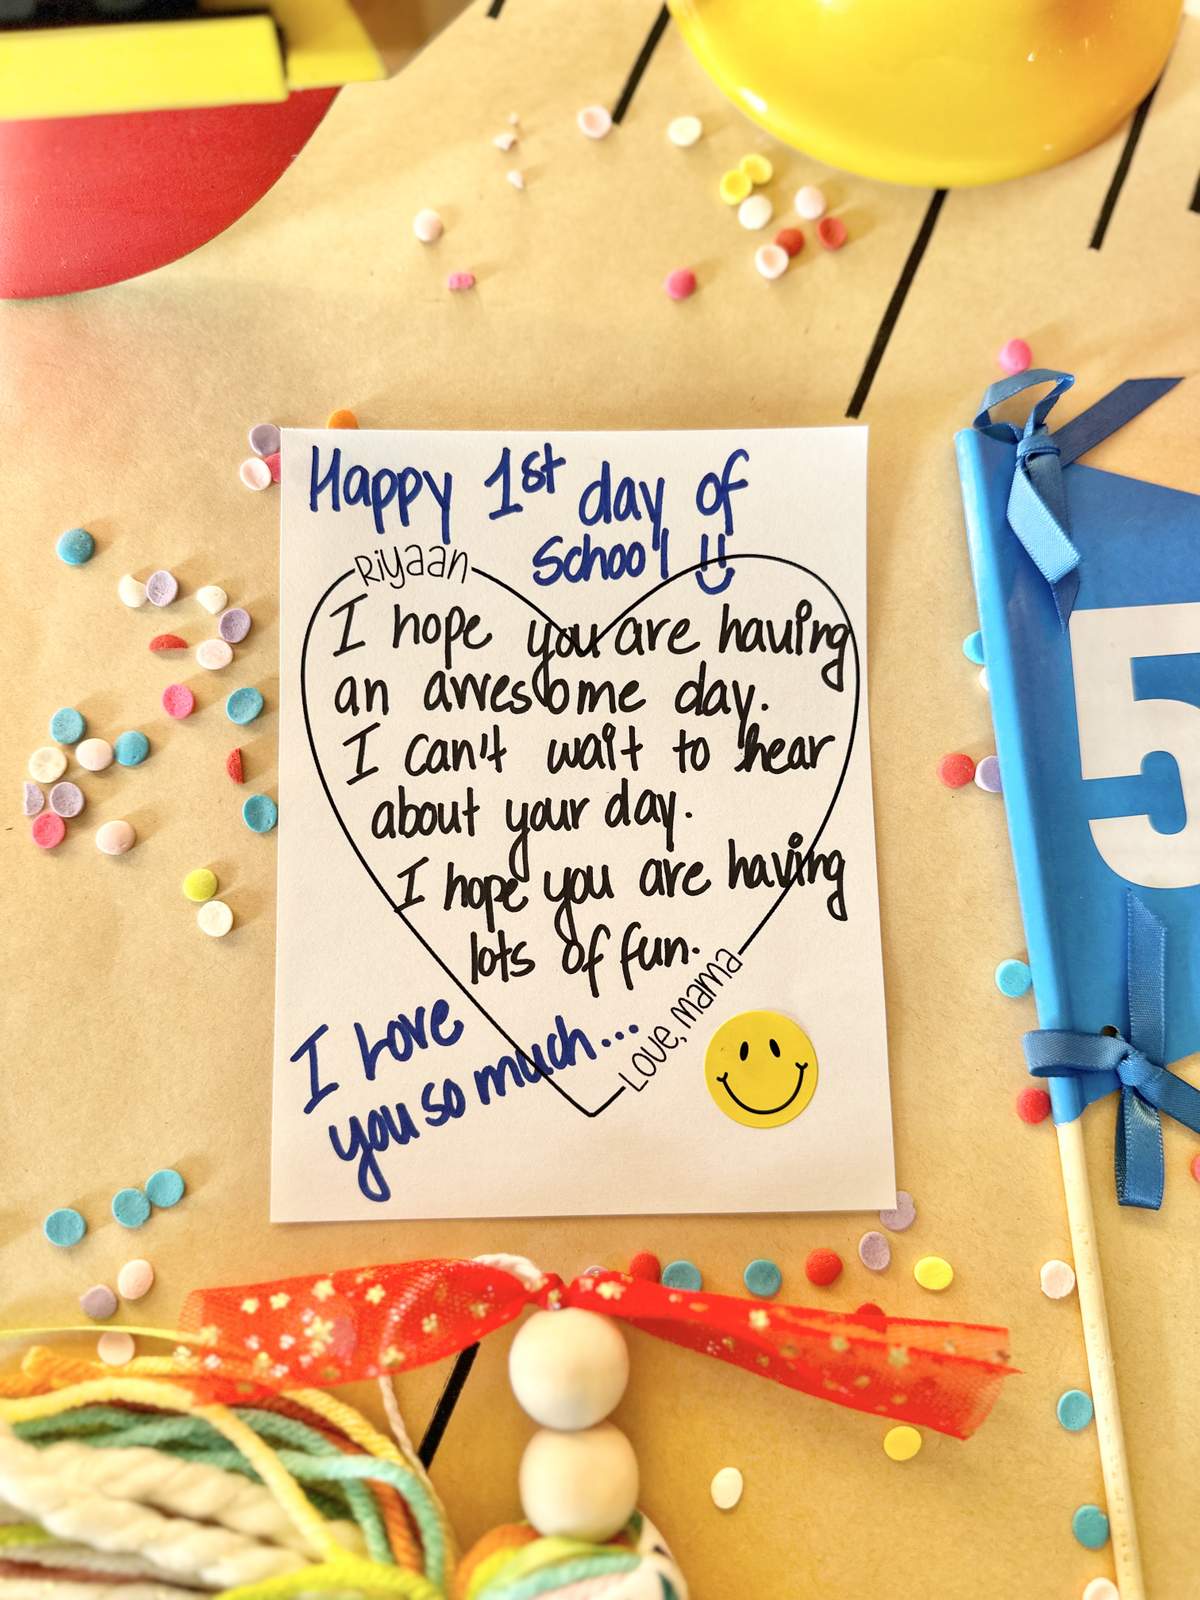 Happy 1st day of
School
Riyaan
I hope you are having
an awesome day.
I can't wait to hear
about your day.
I hope you are having
lots of fun.
Love, mama
I Love
you so much...
5